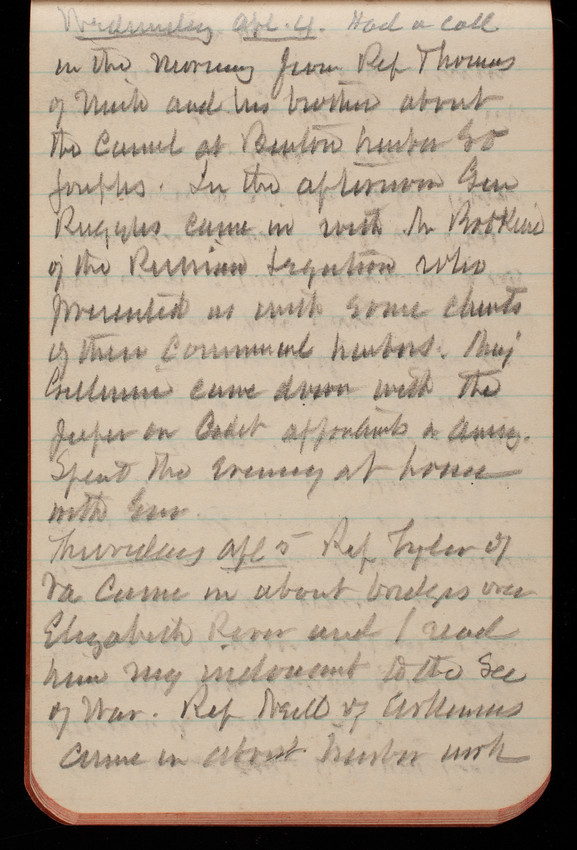 Wednesday Apl. 4. Had a call
in the morning from Rep Thomas
of Mich and his brother about
the Canal at Benton harbor & St
Josephs. In the afternoon Gen
Ruggles came in with Mr Botkine
of the Russian Legation who
presented us with some charts
of their Commercial harbors. Maj
came down with the
papers on Cadet appointments in army.
Spent the evening at home
with Gen
Thursday Apl 5 Rep Tyler of
Va came in about bridges over
Elizabeth River and I read
him my indorsement to the Sec
of War. Rep Neill of Arkansas
came in about harbor work